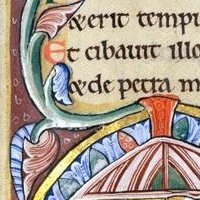 ⁊ erit tempu
Et cibauit illo
⁊ de petra m